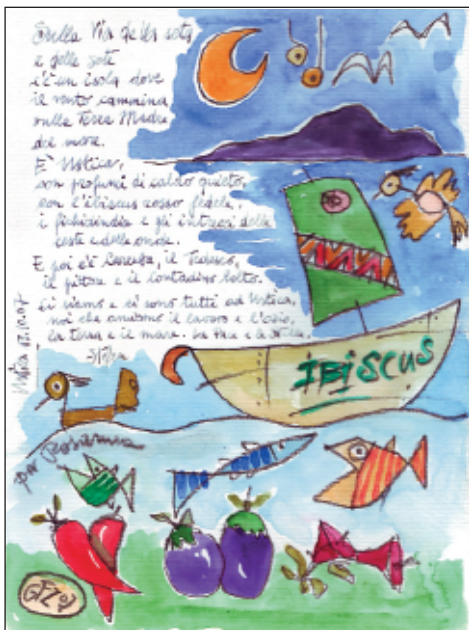 Sulla Via della seta
e delle sete
c'è un isola dove
il vento cammina
sulla Terra Madre
del mare.
E' Ustica,
con profumi di caldo quieto,
con l'ibiscus rosso fedele,
i fichidindia e gli intrecci delle
ceste e delle onde.
E poi c'è il Tedesco,
il pittore e il contadino colto.
Ci siamo e ci sono tutti ad Ustica,
noi che amiamo il lavoro e l'ozio,
la terra e il mare. La Pace e
Ustica 17.10.07
IBISCUS
per Rosanna